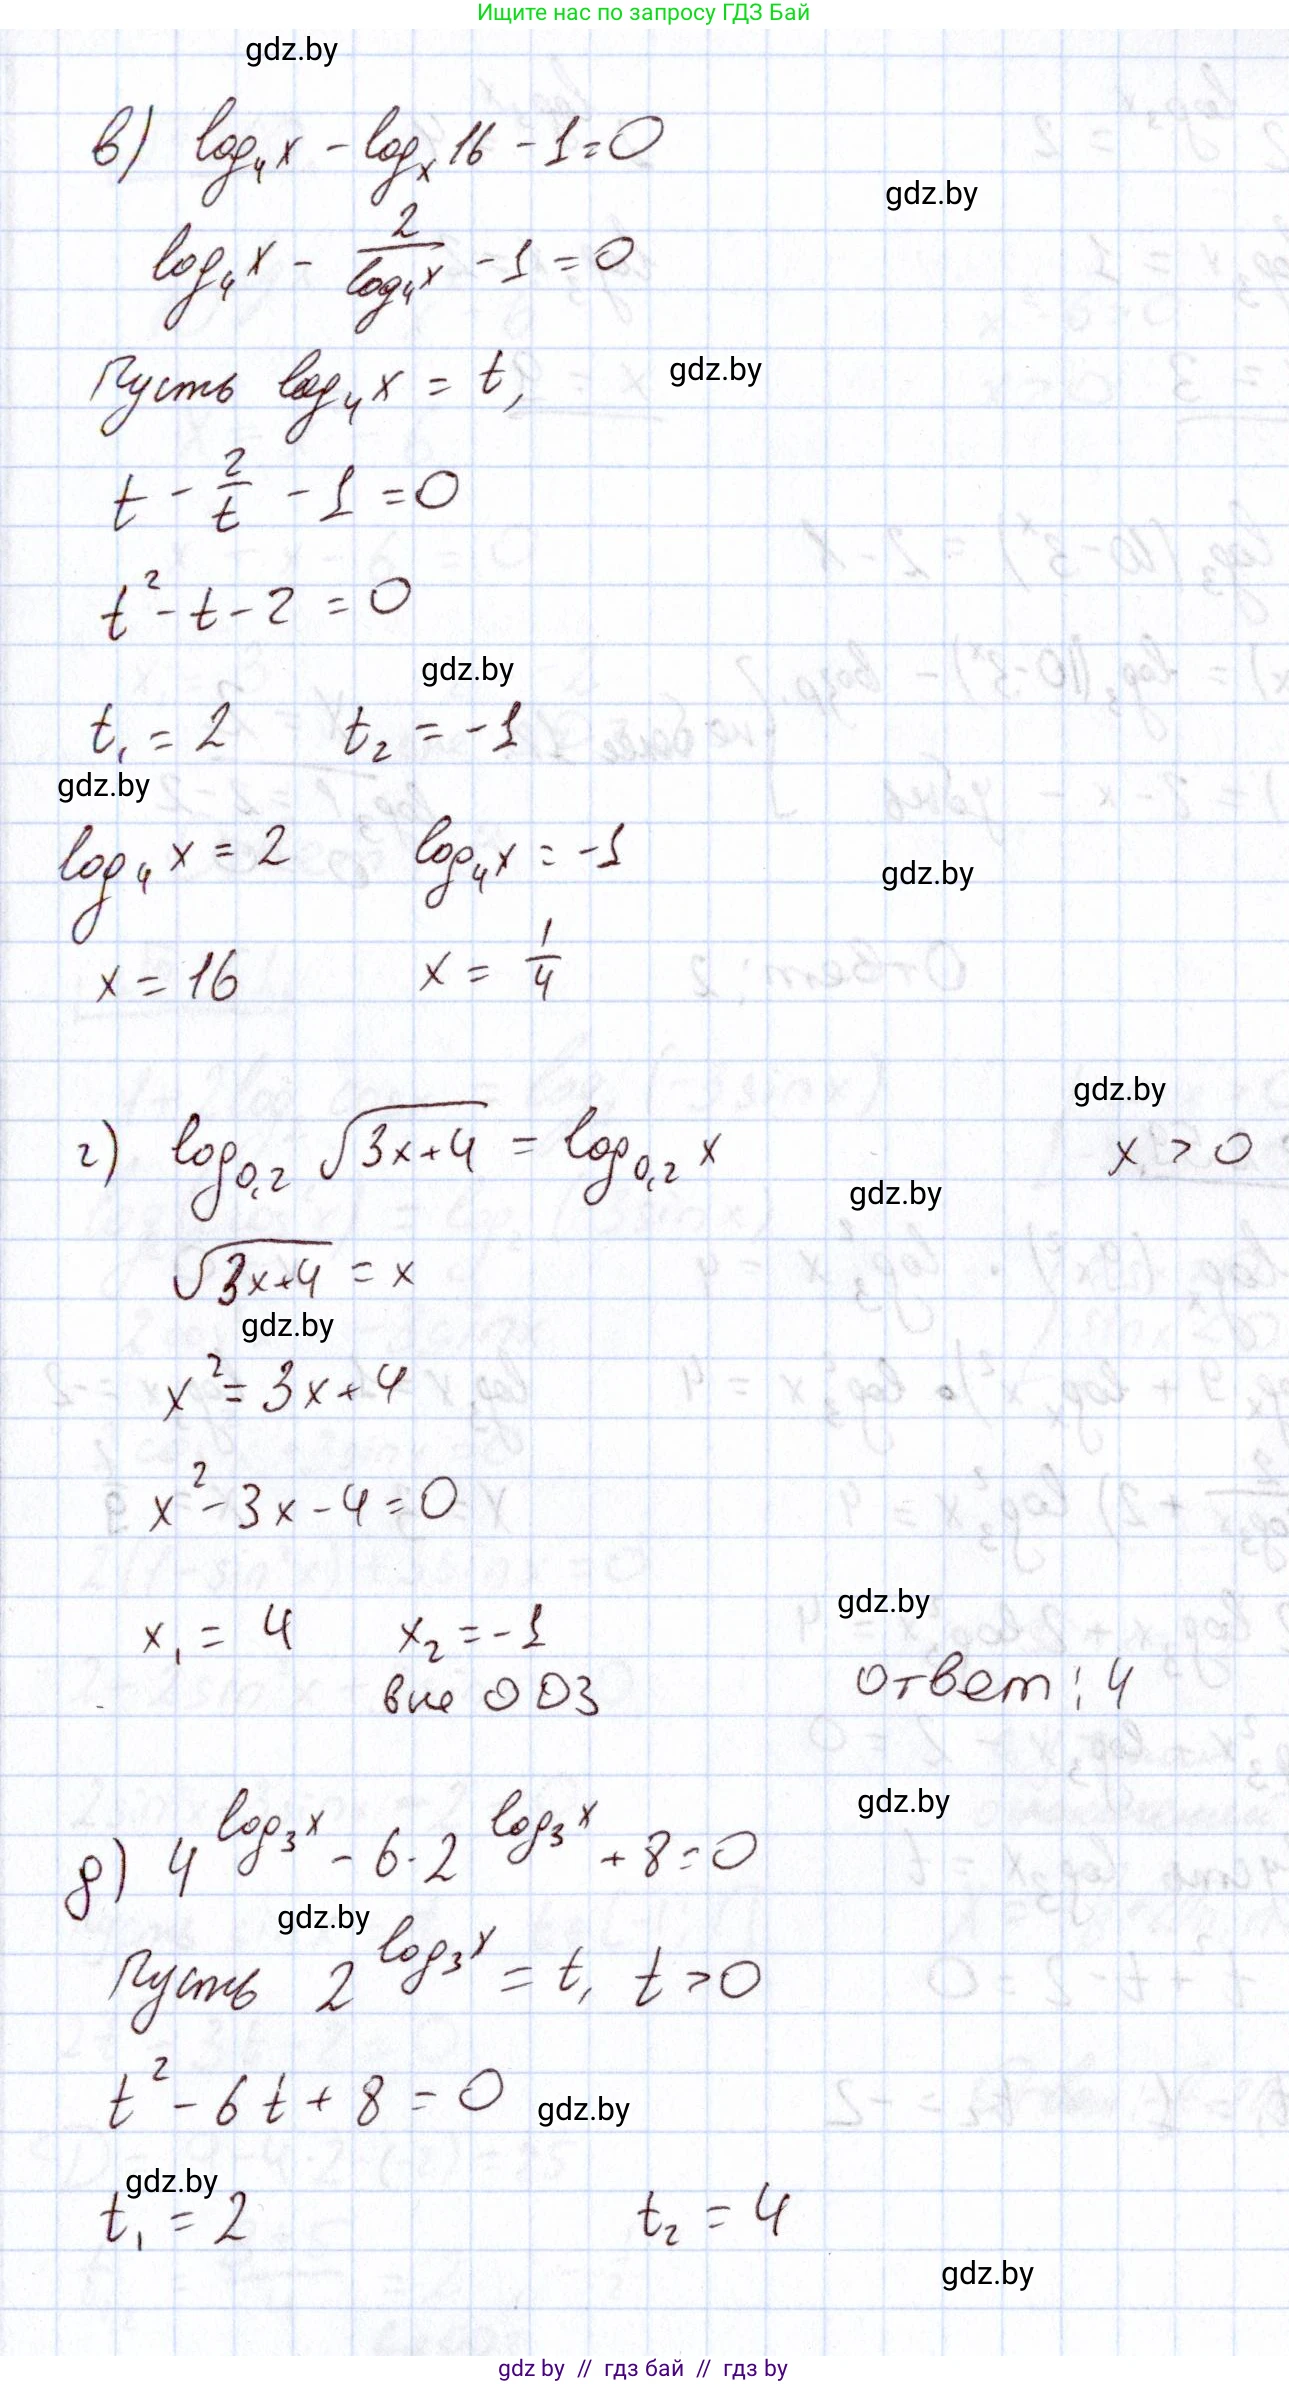 Ищите нас по запросу ГДЗ Бай
gdz.by
в) log₄x - logₓ16 - 1 = 0
gdz.by
log₄x - 2/log₄x - 1 = 0
Пусть log₄x = t,
gdz.by
t - 2/t - 1 = 0
t² - t - 2 = 0
gdz.by
t₁ = 2 t₂ = -1
gdz.by
log₄x = 2 log₄x = -1
gdz.by
x = 16 x = 1/4
gdz.by
г) log₀,₂ √(3x+4) = log₀,₂ x x > 0
gdz.by
√(3x+4) = x
gdz.by
x² = 3x + 4
x² - 3x - 4 = 0
gdz.by
x₁ = 4 x₂ = -1
вне ООЗ ответ: 4
gdz.by
д) 4^(log₃x) - 6·2^(log₃x) + 8 = 0
gdz.by
Пусть 2^(log₃x) = t, t > 0
t² - 6t + 8 = 0
gdz.by
gdz.by
t₁ = 2 t₂ = 4
gdz.by
gdz by // гдз бай // гдз by